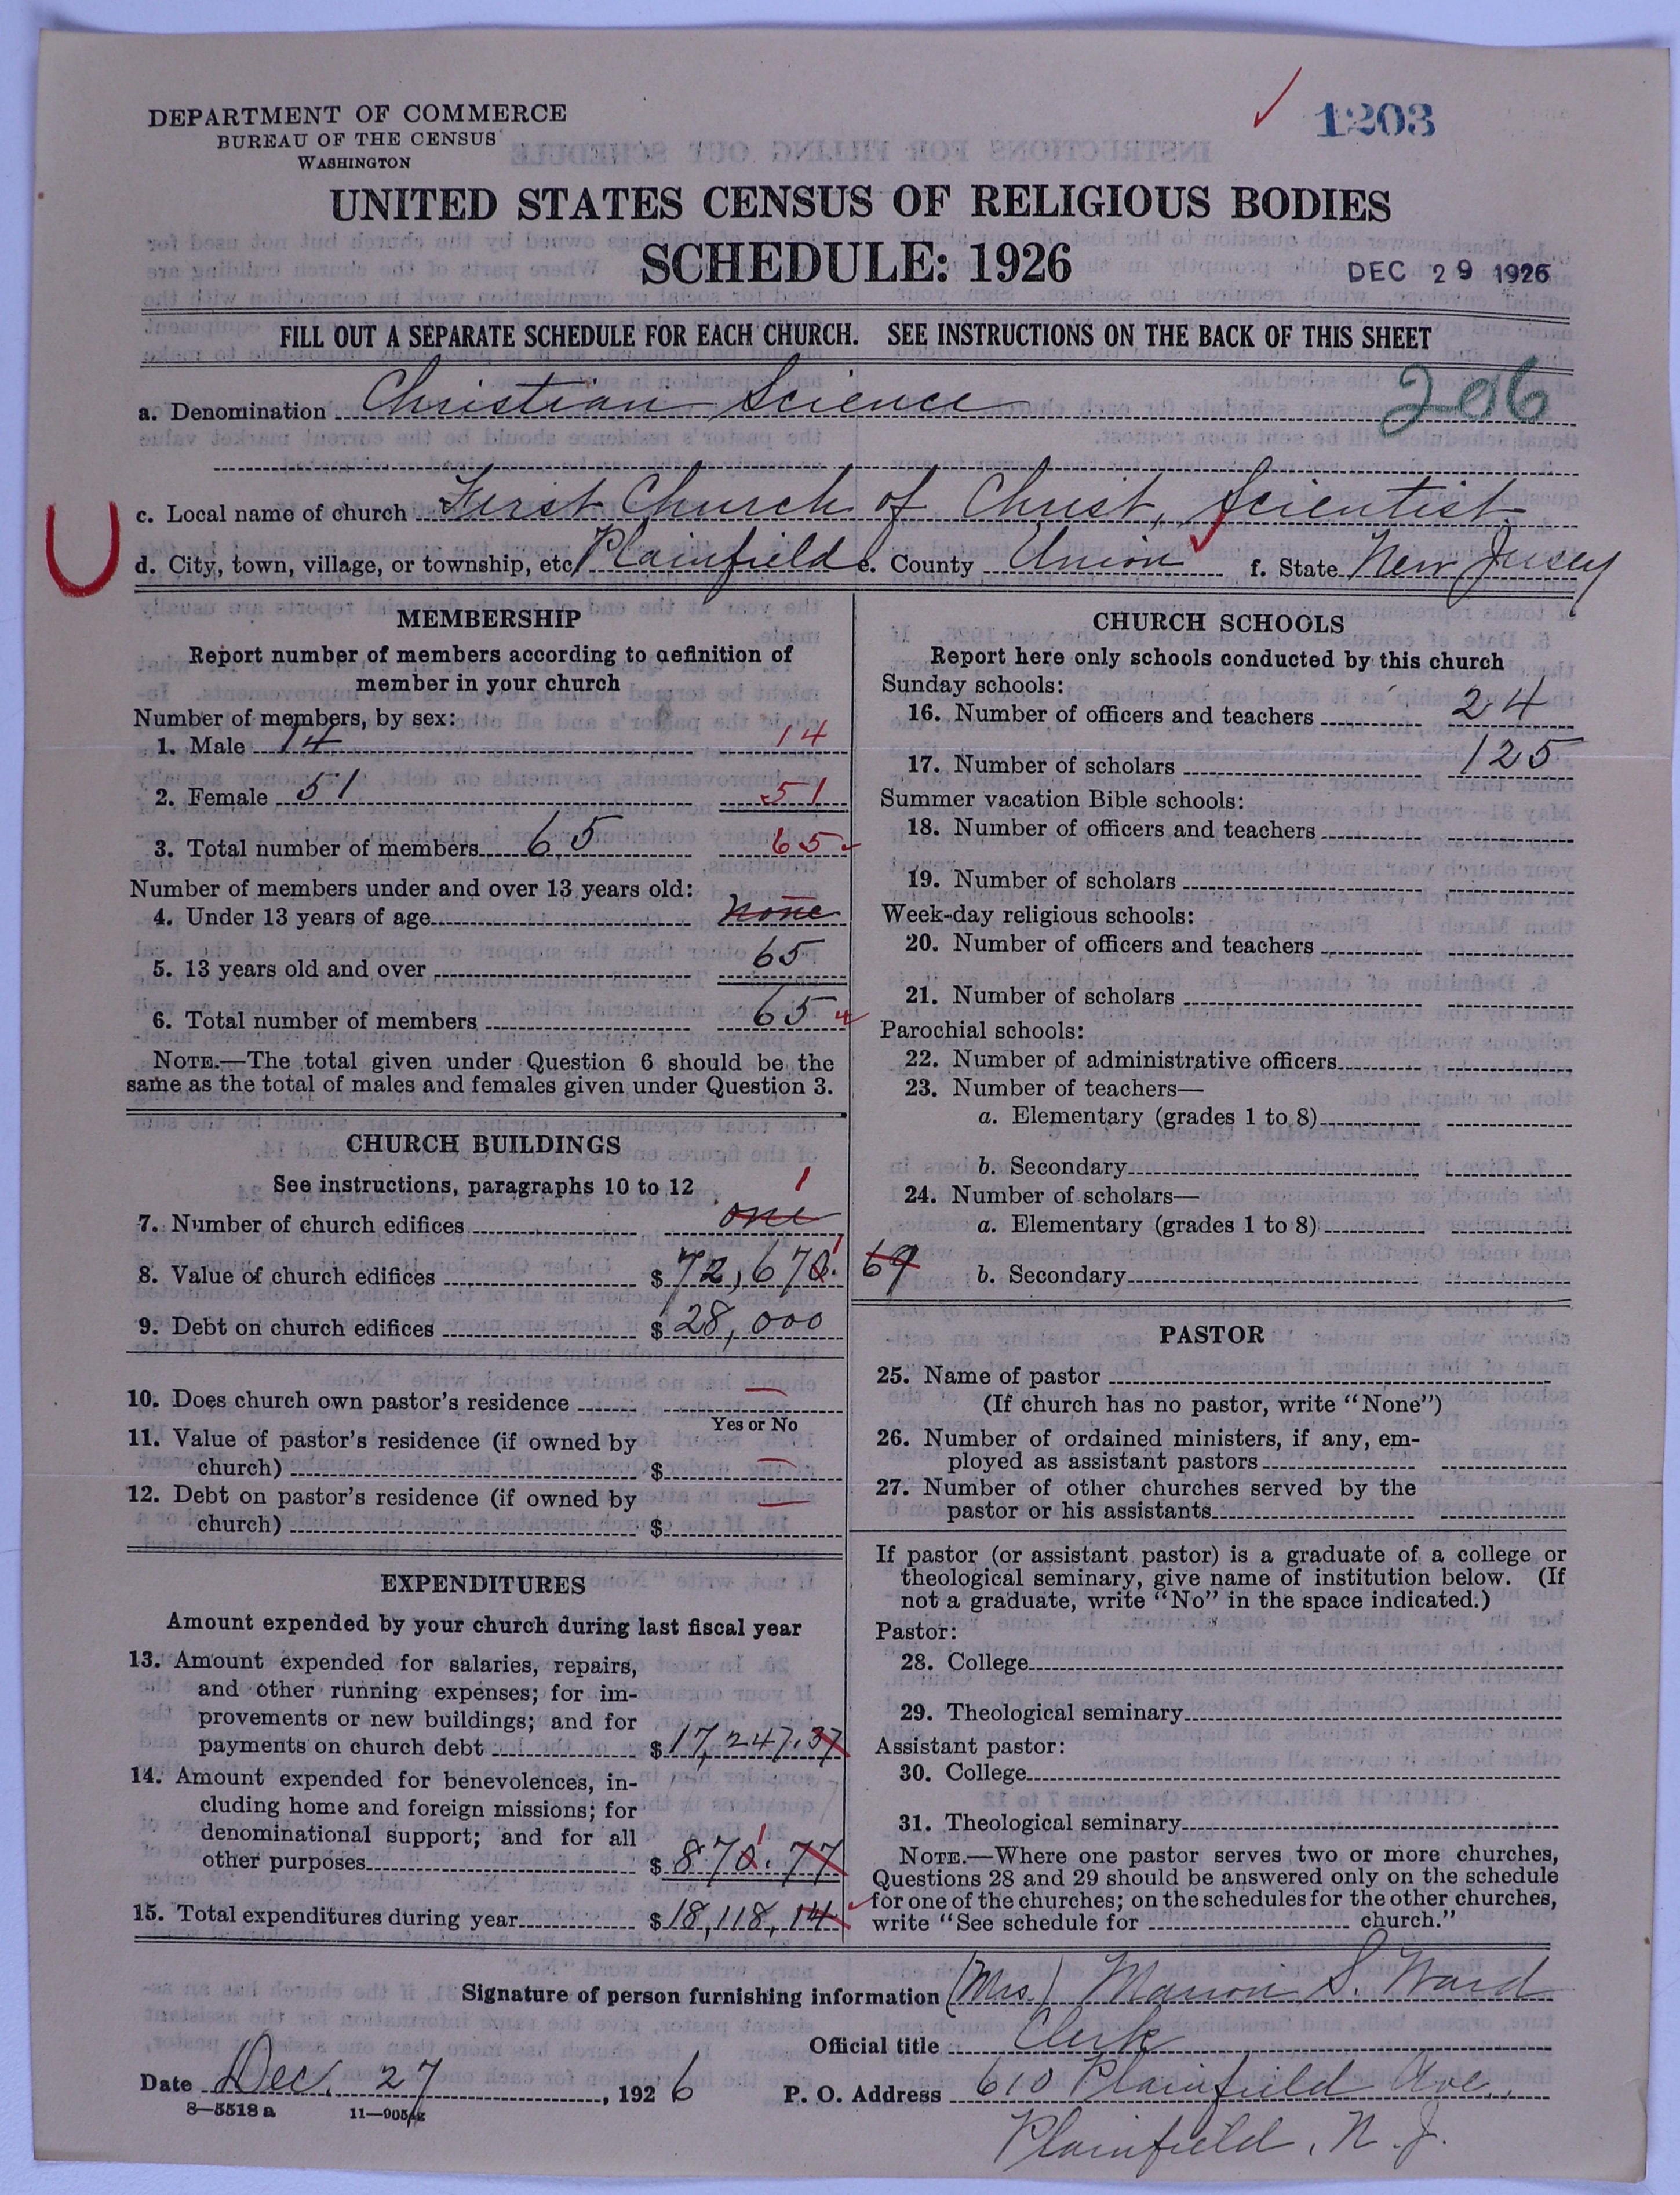 DEPARTMENT OF COMMERCE
BUREAU OF THE CENSUS
WASHINGTON
1203
UNITED STATES CENSUS OF RELIGIOUS BODIES
SCHEDULE: 1926
DEC 29 1926
FILL OUT A SEPARATE SCHEDULE FOR EACH CHURCH. SEE INSTRUCTIONS ON THE BACK OF THIS SHEET
a. Denomination Christian Science 206
c. Local name of church First Church of Christ, Scientist
d. City, town, village, or township, etc. Plainfield e. County Union f. State New Jersey
MEMBERSHIP
Report number of members according to definition of
member in your church
Number of members, by sex:
1. Male 14 14
2. Female 51 51
3. Total number of members 65 65
Number of members under and over 13 years old:
4. Under 13 years of age none
5. 13 years old and over 65
6. Total number of members 65
NOTE.—The total given under Question 6 should be the
same as the total of males and females given under Question 3.
CHURCH BUILDINGS
See instructions, paragraphs 10 to 12
1
7. Number of church edifices one
8. Value of church edifices $72,670. 1 69
9. Debt on church edifices $28,000
10. Does church own pastor's residence —
Yes or No
11. Value of pastor's residence (if owned by
church) $ —
12. Debt on pastor's residence (if owned by
church) $ —
EXPENDITURES
Amount expended by your church during last fiscal year
13. Amount expended for salaries, repairs,
and other running expenses; for im-
provements or new buildings; and for
payments on church debt $17,247.37
14. Amount expended for benevolences, in-
cluding home and foreign missions; for
denominational support; and for all
other purposes $870.77 1
15. Total expenditures during year $18,118,14
CHURCH SCHOOLS
Report here only schools conducted by this church
Sunday schools:
16. Number of officers and teachers 24
17. Number of scholars 125
Summer vacation Bible schools:
18. Number of officers and teachers
19. Number of scholars
Week-day religious schools:
20. Number of officers and teachers
21. Number of scholars
Parochial schools:
22. Number of administrative officers
23. Number of teachers—
a. Elementary (grades 1 to 8)
b. Secondary
24. Number of scholars—
a. Elementary (grades 1 to 8)
b. Secondary
PASTOR
25. Name of pastor
(If church has no pastor, write "None")
26. Number of ordained ministers, if any, em-
ployed as assistant pastors
27. Number of other churches served by the
pastor or his assistants
If pastor (or assistant pastor) is a graduate of a college or
theological seminary, give name of institution below. (If
not a graduate, write "No" in the space indicated.)
Pastor:
28. College
29. Theological seminary
Assistant pastor:
30. College
31. Theological seminary
NOTE.—Where one pastor serves two or more churches,
Questions 28 and 29 should be answered only on the schedule
for one of the churches; on the schedules for the other churches,
write "See schedule for church."
Signature of person furnishing information (Mrs.) Marion S. Ward
Official title Clerk
Date Dec. 27, 1926 P. O. Address 610 Plainfield Ave.,
8—5518 a
Plainfield, N. J.